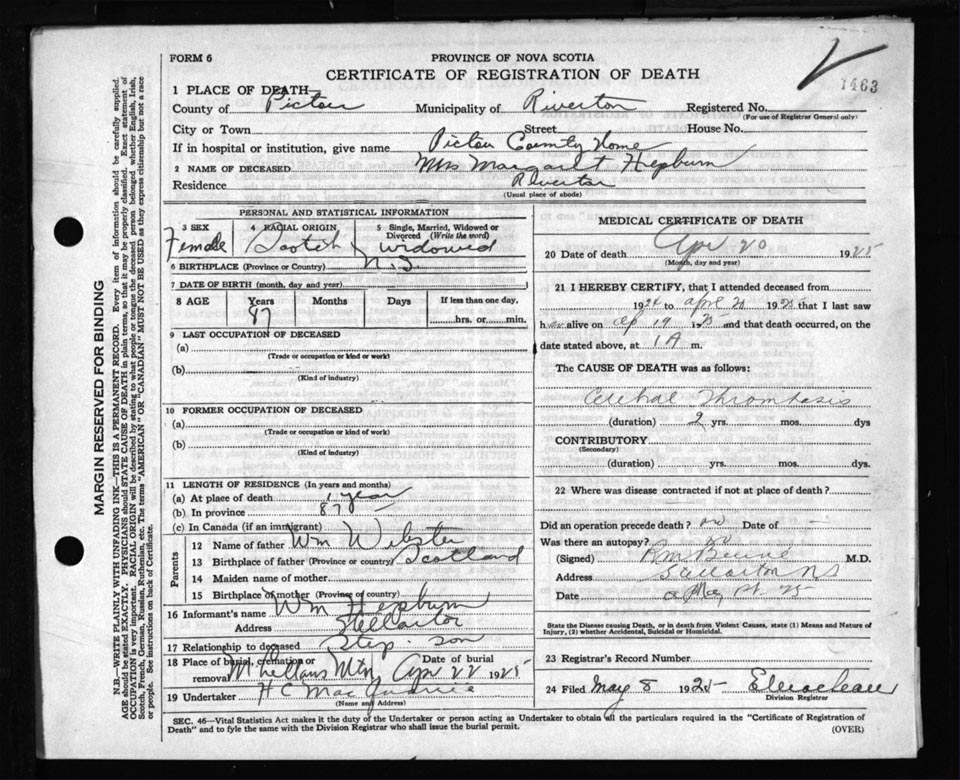 FORM 6
PROVINCE OF NOVA SCOTIA
CERTIFICATE OF REGISTRATION OF DEATH
1463
1 PLACE OF DEATH
County of Pictou Municipality of Riverton Registered No.
(For use of Registrar General only)
City or Town Street House No.
If in hospital or institution, give name Pictou County Home
2 NAME OF DECEASED Mrs Margaret Hepburn
Residence Riverton
(Usual place of abode)
PERSONAL AND STATISTICAL INFORMATION
3 SEX 4 RACIAL ORIGIN 5 Single, Married, Widowed or Divorced (Write the word)
Female Scotch widowed
6 BIRTHPLACE (Province or Country) N.S.
7 DATE OF BIRTH (month, day and year)
8 AGE Years Months Days If less than one day,
87 hrs. or min.
9 LAST OCCUPATION OF DECEASED
(a)
(Trade or occupation or kind or work)
(b)
(Kind of industry)
10 FORMER OCCUPATION OF DECEASED
(a)
(Trade or occupation or kind of work)
(b)
(Kind of industry)
11 LENGTH OF RESIDENCE (In years and months)
(a) At place of death 1 year
(b) In province 87
(c) In Canada (if an immigrant)
Parents
12 Name of father Wm Webster
13 Birthplace of father (Province or country) Scotland
14 Maiden name of mother
15 Birthplace of mother (Province of country)
16 Informant's name Wm Hepburn
Address Stellarton
17 Relationship to deceased Step-son
18 Place of burial, cremation or removal Mtn Date of burial Apr 22 1925
19 Undertaker H C
(Name and Address)
MEDICAL CERTIFICATE OF DEATH
20 Date of death Apr 20 1925
(Month, day and year)
21 I HEREBY CERTIFY, that I attended deceased from
1924 to april 20 1925 that I last saw
her alive on ap 19 1925 and that death occurred, on
date stated above, at 1 A m.
The CAUSE OF DEATH was as follows:
Cerebral Thrombosis
(duration) 2 yrs. mos. dys
CONTRIBUTORY
(Secondary)
(duration) yrs. mos. dys.
22 Where was disease contracted if not at place of death?
Did an operation precede death? no Date of
Was there an autopsy? no
(Signed) M.D.
Address Stellarton NS
Date
State the Disease causing Death, or in death from Violent Causes, state (1) Means and Nature of
Injury, (2) whether Accidental, Suicidal or Homicidal.
23 Registrar's Record Number
24 Filed May 8 1925
Division Registrar
SEC. 46—Vital Statistics Act makes it the duty of the Undertaker or person acting as Undertaker to obtain all the particulars required in the "Certificate of Registration of
Death" and to fyle the same with the Division Registrar who shall issue the burial permit.
(OVER)
MARGIN RESERVED FOR BINDING
N.B.—WRITE PLAINLY WITH UNFADING INK—THIS IS A PERMANENT RECORD. Every item of information should be carefully supplied.
AGE should be stated EXACTLY. PHYSICIANS should STATE CAUSE OF DEATH in plain terms, so that it may be properly classified. Exact statement of
OCCUPATION is very important. RACIAL ORIGIN will be described by stating to what people or tongue the deceased person belonged whether English, Irish,
Scotch, French, German, Russian, Ruthenian, etc. The terms "AMERICAN" OR "CANADIAN" MUST NOT BE USED as they express citizenship but not a race
or people. See instructions on back of Certificate.